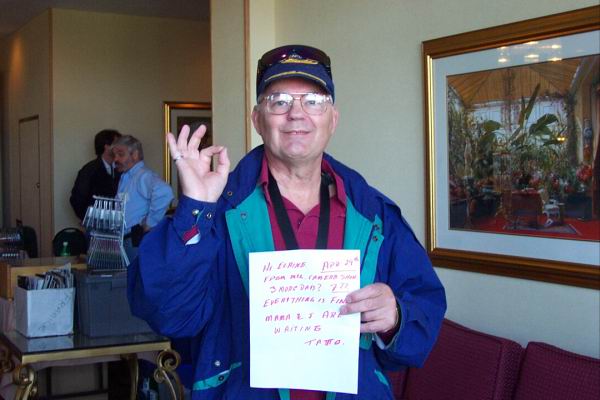 Hi Elaine Apr 29th
From the camera show
3 more days? 
Everything is fine
Mama & I are
waiting